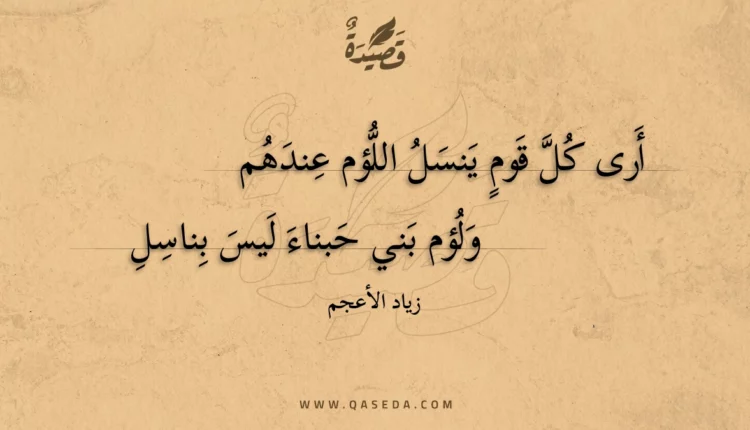 قَصِيدَةٌ
أَرى كُلَّ قَومٍ يَنسَلُ اللُّؤم عِندَهُم
وَلُؤم بَني حَبناءَ لَيسَ بِناسِلِ
زياد الأعجم
WWW.QASEDA.COM